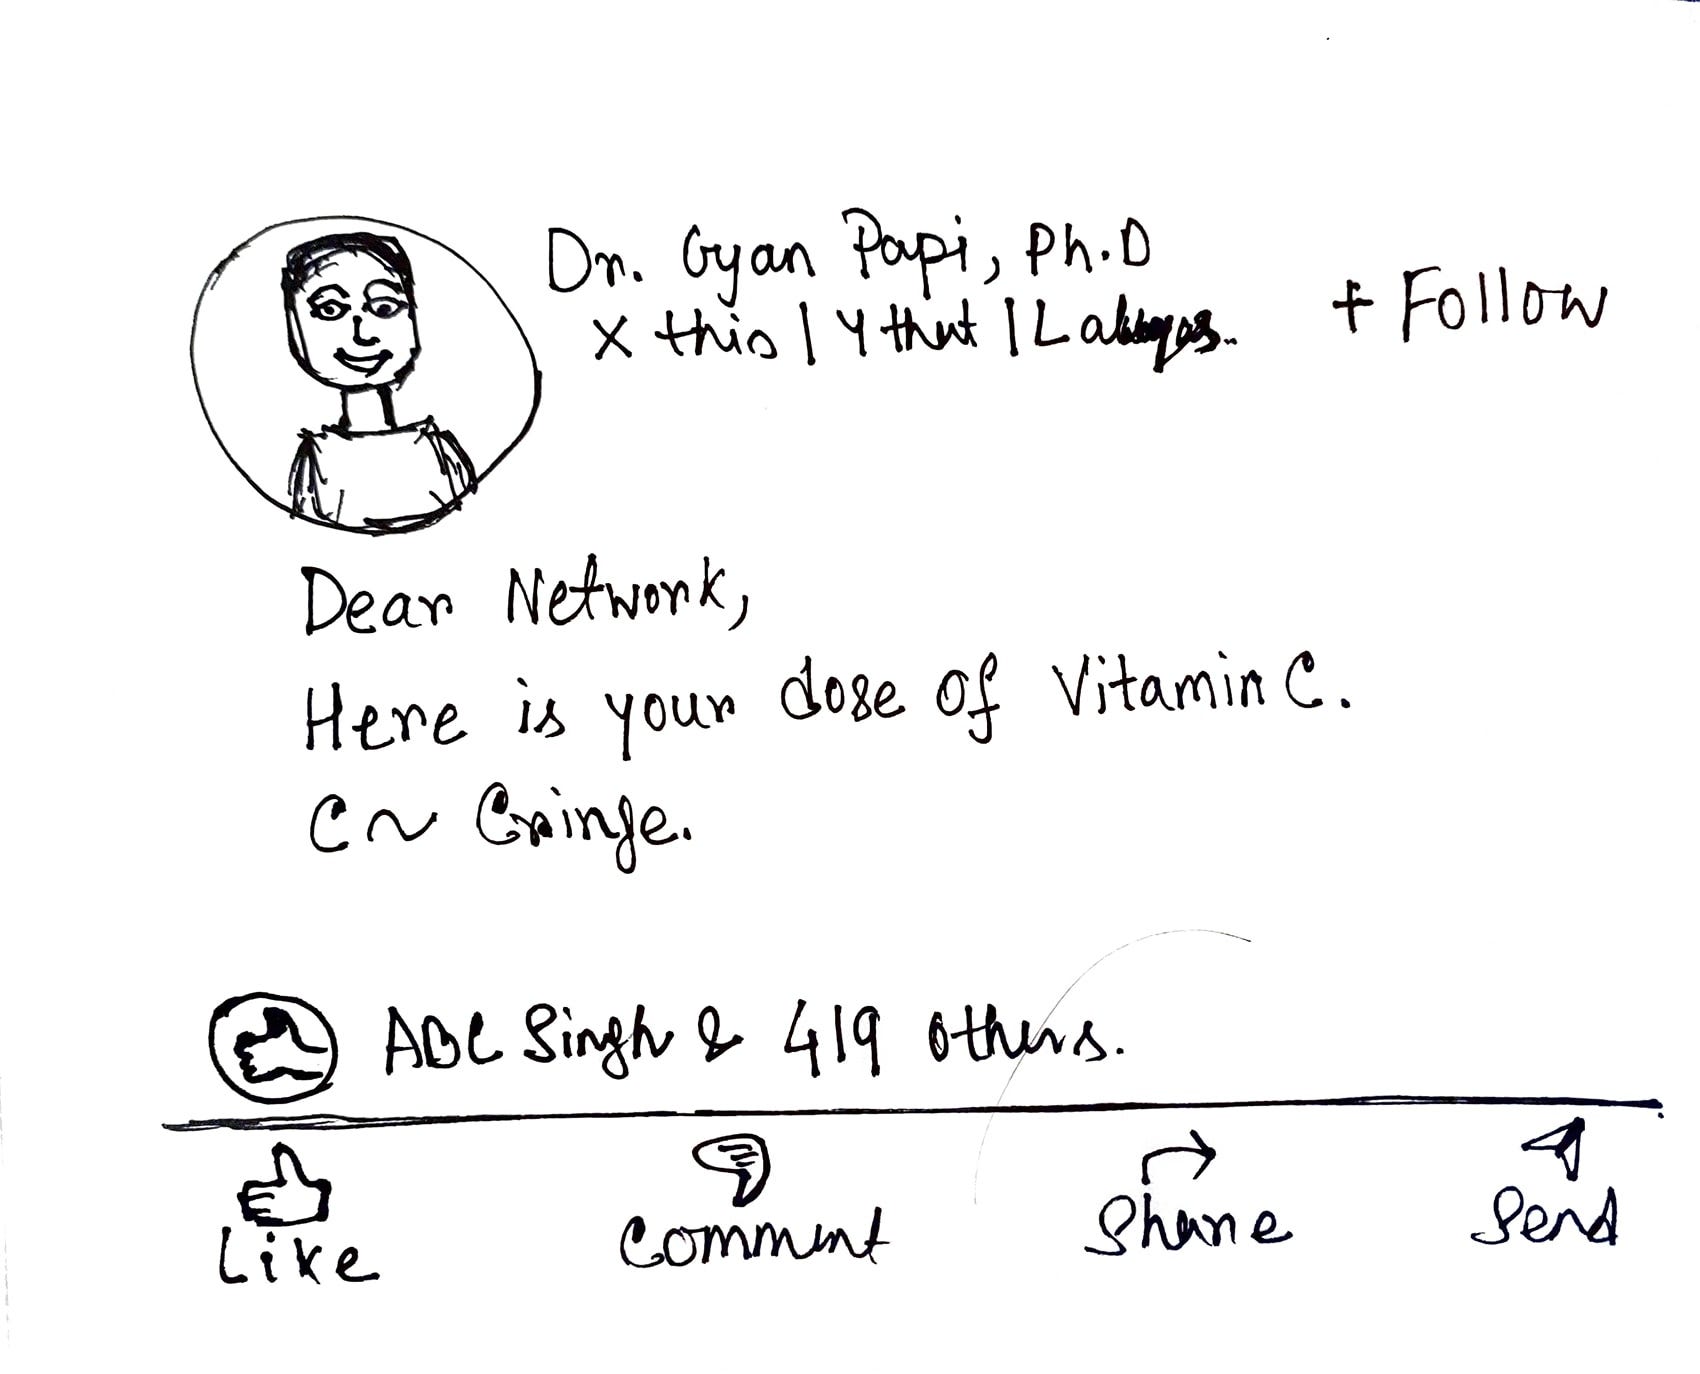 Dr. Gyan Papi, Ph.D
X this | Y that | L
+ Follow
Dear Network,
Here is your dose of Vitamin C.
C ~ Cringe.
ABC Singh & 419 others.
Like
Comment
Share
Send